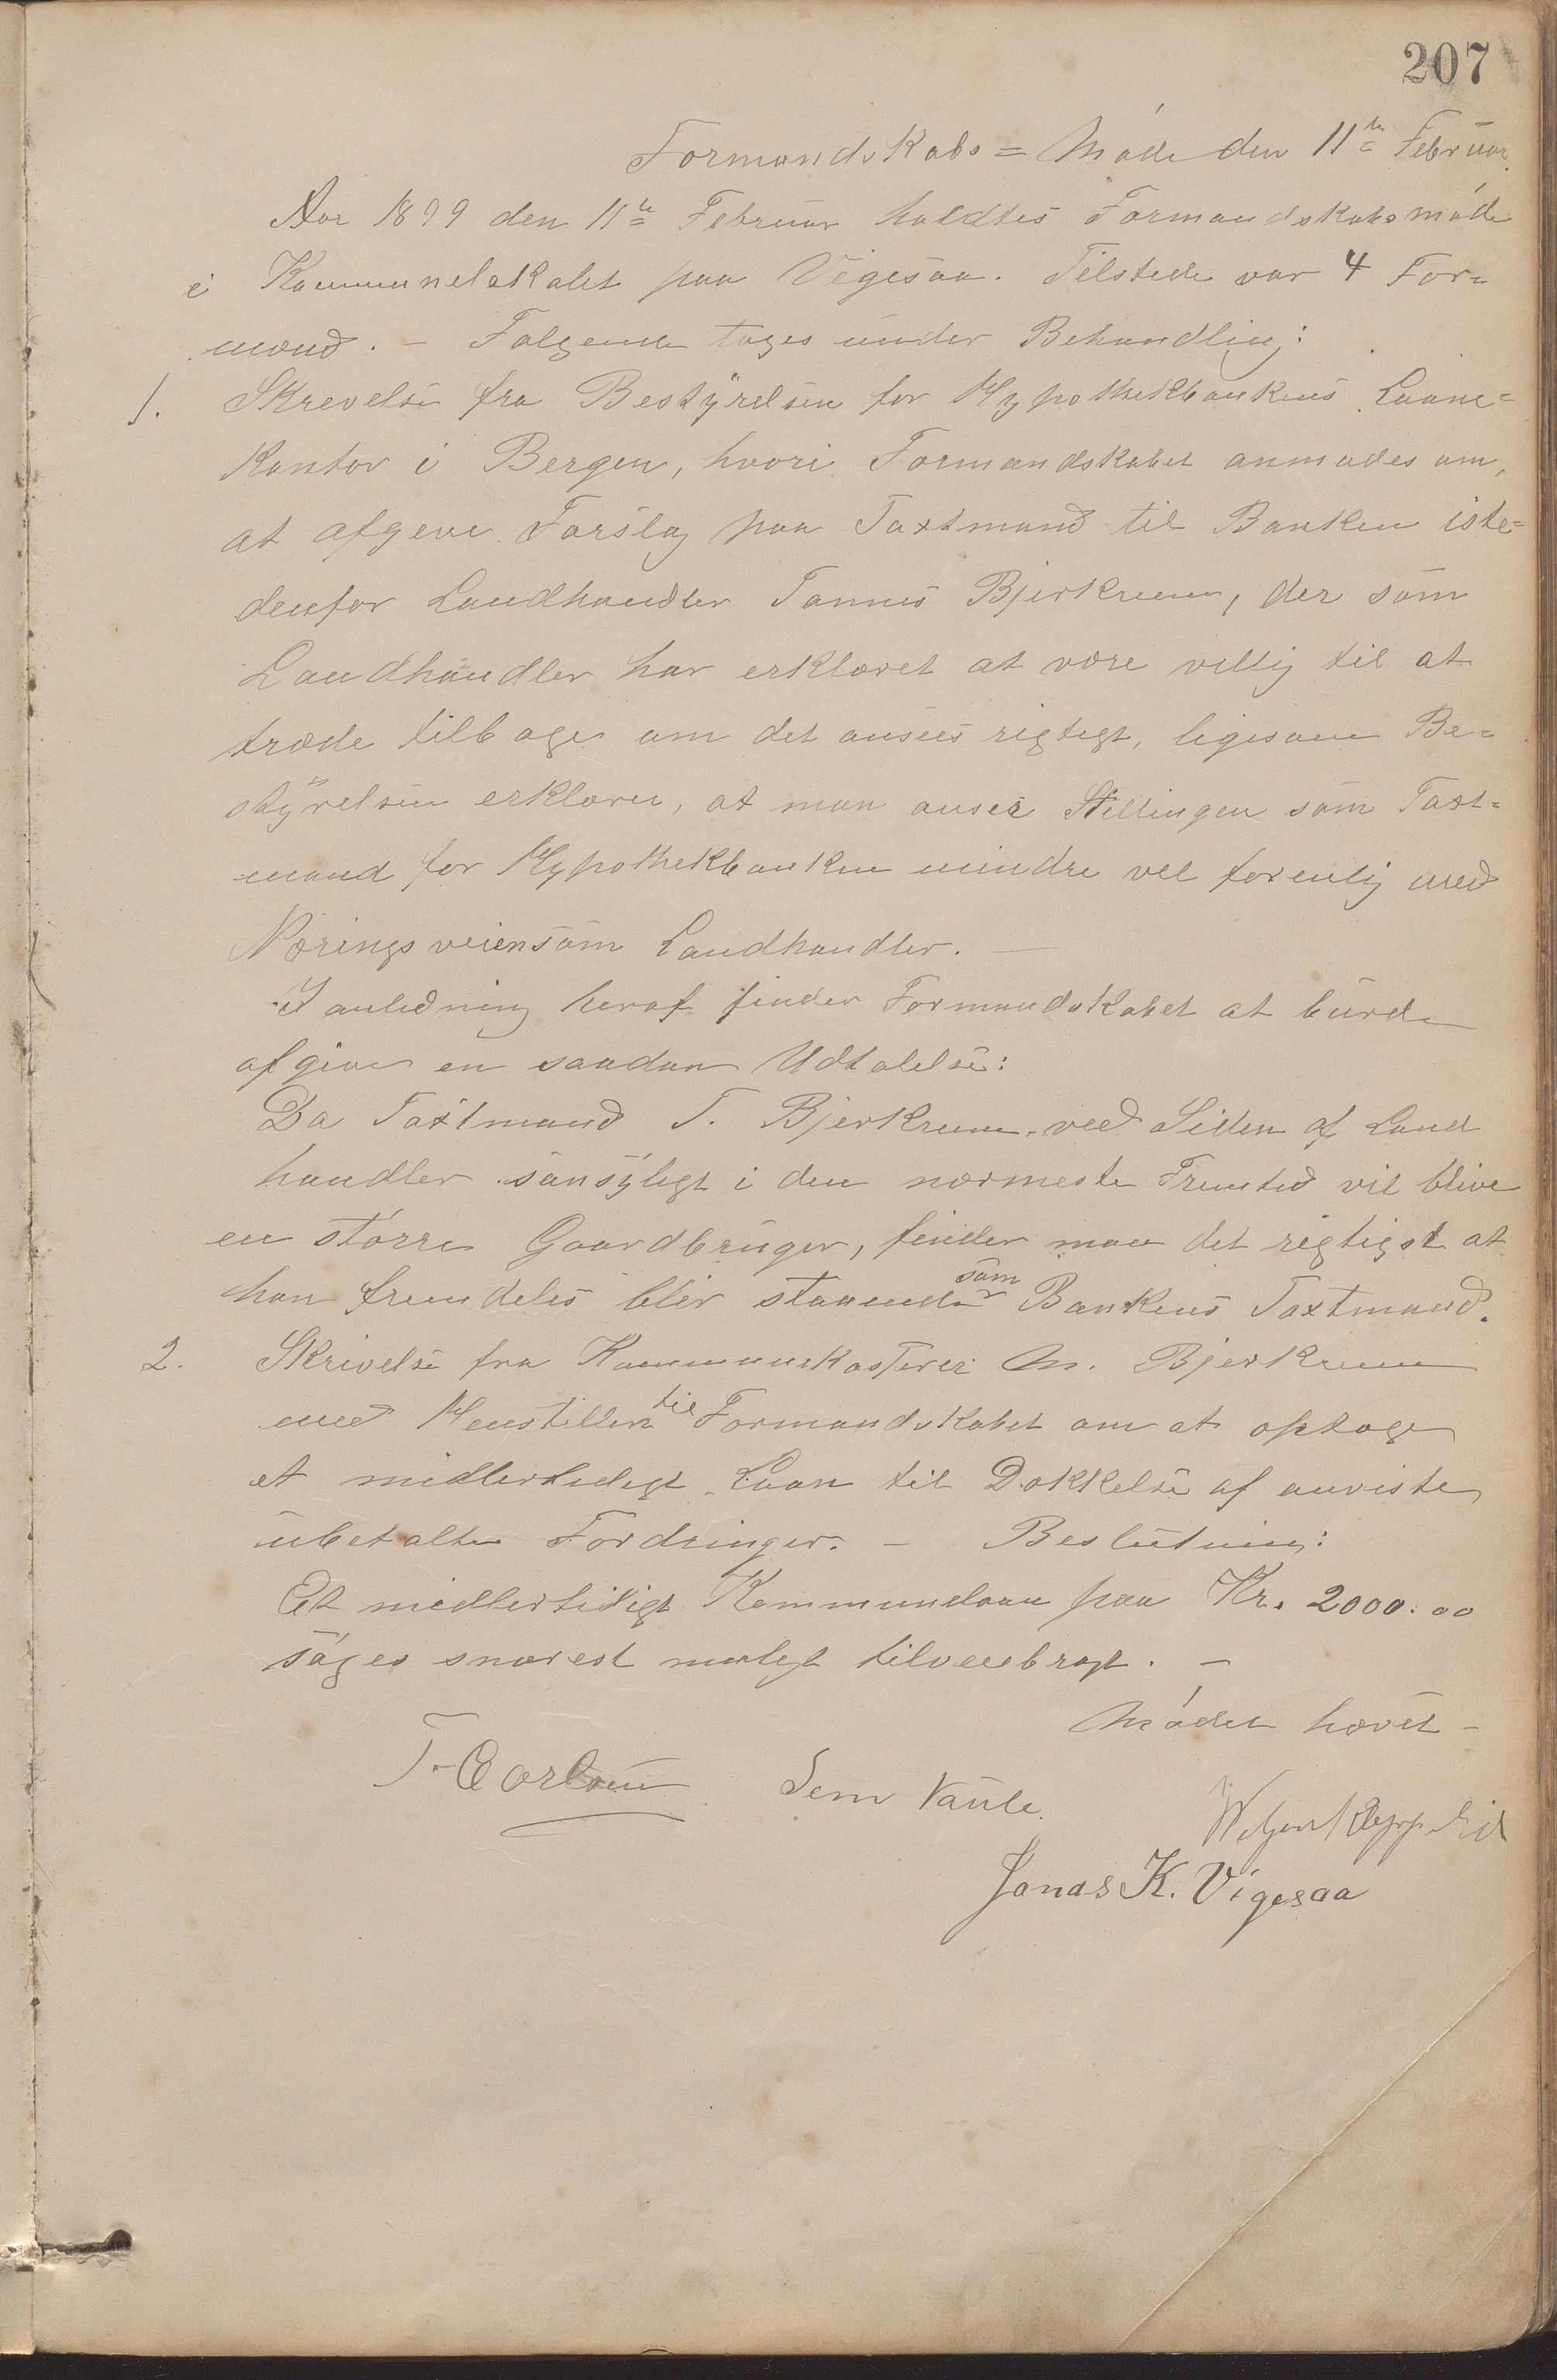 207
Formandskabs = Møde den 11te Februar
Aar 1899 den 11te Februar holdtes Formandskabsmøde
i Kommunelokalet paa Vigesaa. Tilstede var 4 For-
mænd. – Følgende toges under Behandling:
1. Skrevelse fra Bestyrelsen for Hypothekbankens Laane=
kontor i Bergen, hvori Formandskabet anmodes om,
at afgeve Forslag paa Taxtmand til Banken iste=
denfor Landhandler Tønnes Bjerkreim, der som
Landhandler har erklæret at være villig til at
træde tilbage om det ansees rigtigt, ligesom Be=
styrelsen erklærer, at man anser Stillingen som Taxt=
mand for Hypothekbanken mindre vel forenlig med
Næringsveien som Landhandler. –
I anledning heraf finder Formandskabet at burde
afgive en saadan Udtalelse:
Da Taxtmand T. Bjerkreim, ved Siden af Land
handler sansyligt i den nærmeste Fremtid vil blive
en større Gaardbruger, finder man det rigtigst at
han fremdeles blir staaende som Bankens Taxtmand.
2. Skrivelse fra Kommunekasserer M. Bjerkreim
med Henstillen til Formandskabet om at optage
et midlertidigt Laan til Dækkelse af anviste
ubetalte Fordringer. – Beslutning:
Et midlertidigt Kommunelaan paa Kr. 2000.00
søges snarest muligt tilveiebragt. –
Mødet hævet –
T. Sem Vaule.
Jonas K. Vigesaa